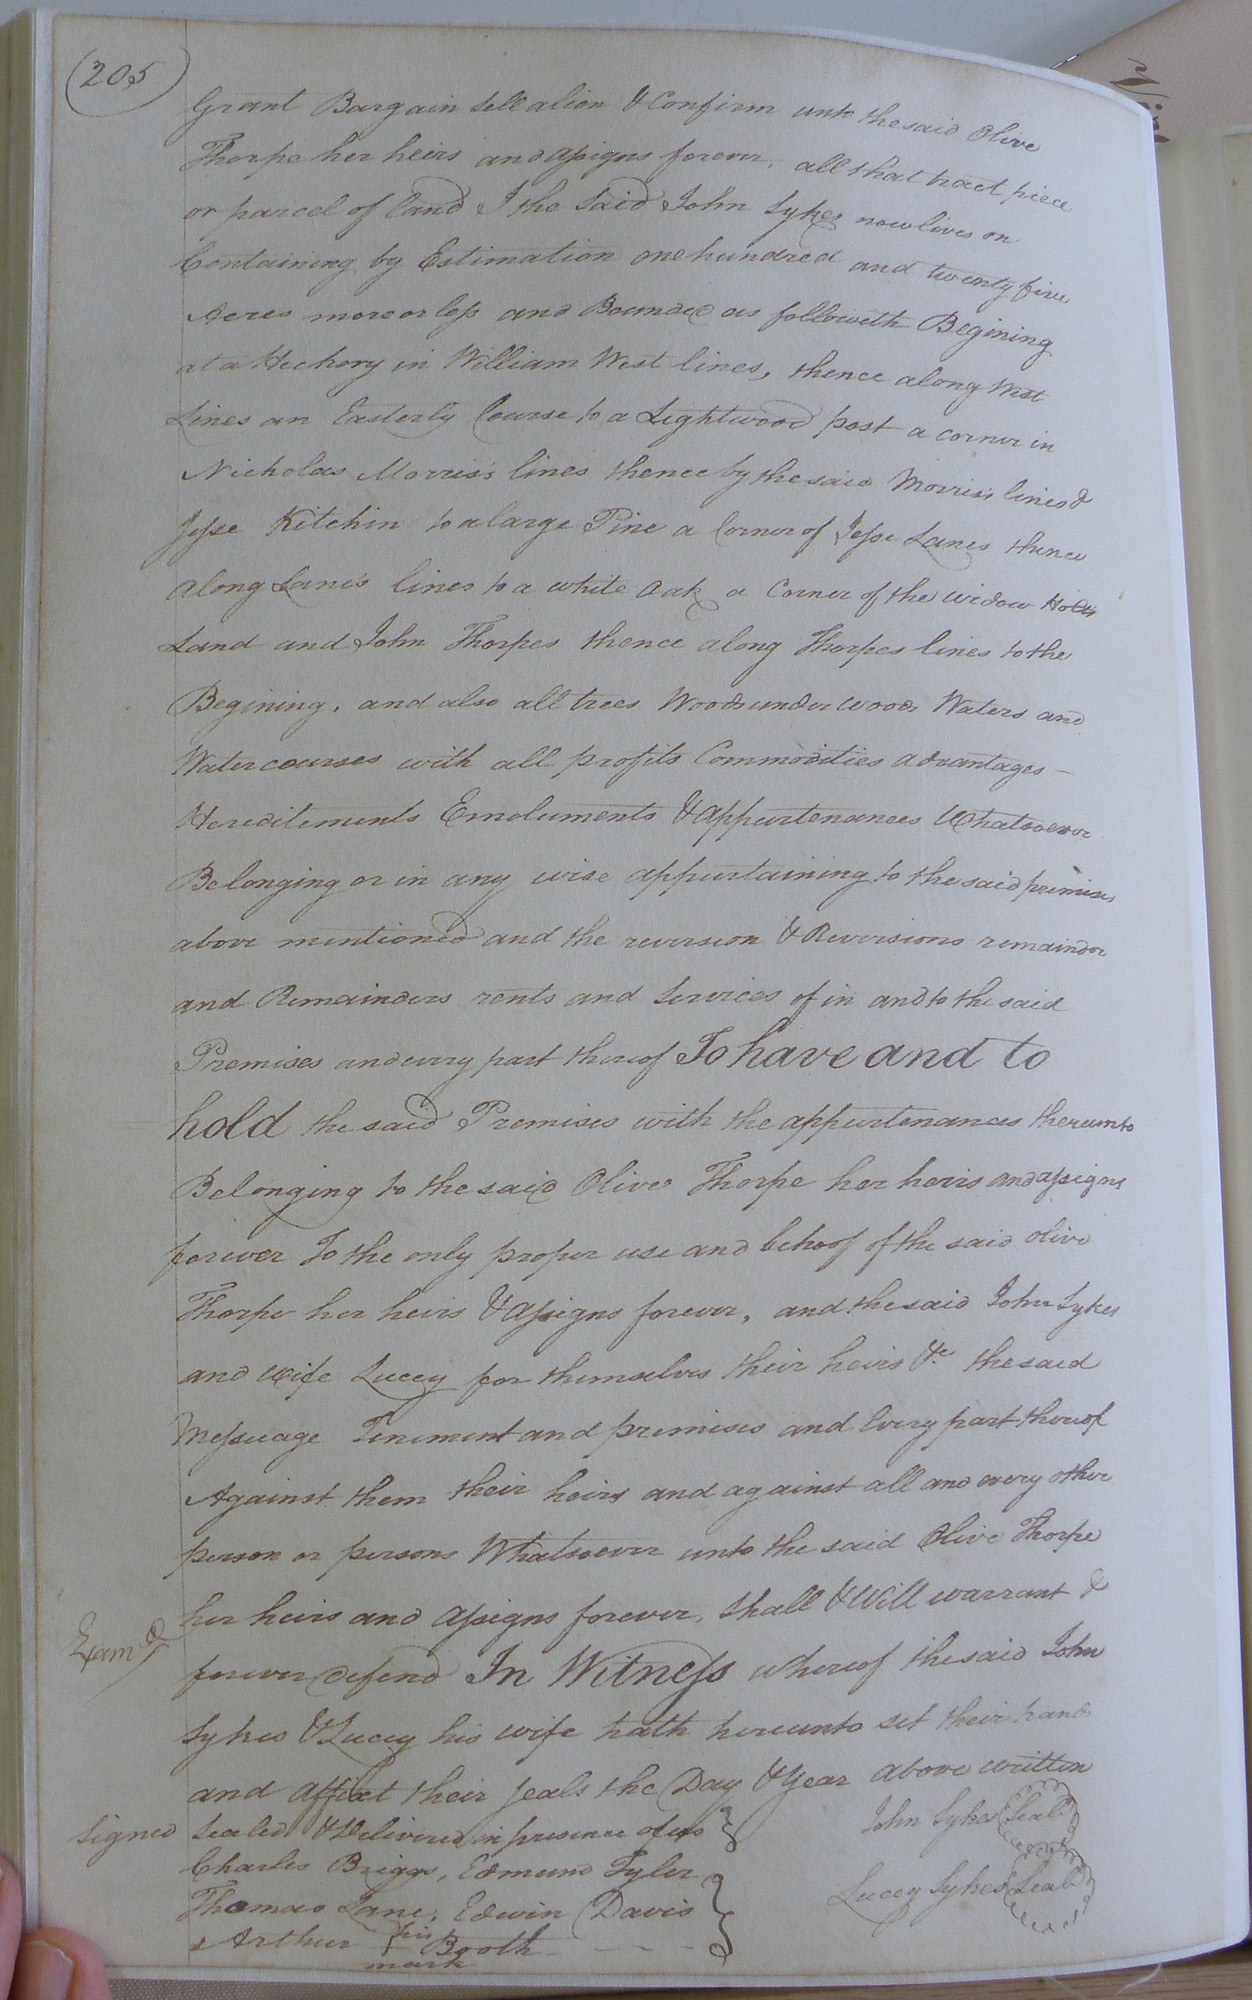 205
Grant Bargain Sell alien & Confirm unto the said Olive
Thorpe her heirs and assigns forever, all that tract piece
or parcel of land I the Said John Sykes now lives on
Containing by Estimation one hundred and twenty five
Acres more or less and Bounded as followeth Begining
at a Hickory in William West lines, thence along West
Lines an Easterly Course to a Lightwood post a corner in
Nicholas Morris's lines thence by the said Morris's lines &
Jesse Kitchin to a large Pine a Corner of Jesse Lanes thence
along Lane's lines to a white Oak a Corner of the widow Holts
Land and John Thorpes thence along Thorpes lines to the
Begining, and also all trees Woods under woods Waters and
Watercourses with all profits Commodities advantages –
Hereditements Emoluments & appurtenances Whatsoever
Belonging or in any wise appurtaining to the said premises
above mentioned and the reversion & Reversions remainder
and Remainders rents and Services of in and to the said
Premises and every part thereof To have and to
hold the said Premises with the appurtenances thereunto
Belonging to the said Olive Thorpe her heirs and assigns
forever To the only proper use and behoof of the said olive
Thorpe her heirs & assigns forever, and the said John Sykes
and wife Lucey for themselves their heirs &c the said
Messuage Teniment and premises and Every part thereof
Against them their heirs and against all and every other
person or persons Whatsoever unto the said Olive Thorpe
her heirs and assigns forever, shall & Will warrant &
Exam.d
forever defend In Witness whereof the said John
Sykes & Lucey his wife hath hereunto set their hands
and affixt their seals the Day & Year above written
Signed Sealed & Delivered in presence of us
John Sykes Seal
Charles Briggs, Edmund Tyler
Thomas Lane, Edwin Davis
Lucey Sykes Seal
Arthur his + mark Booth